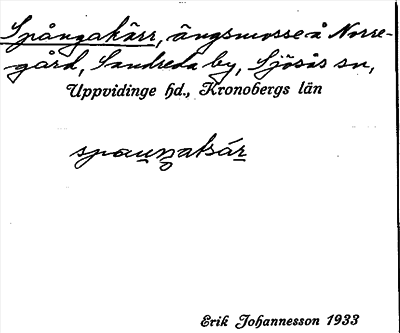 Spångakärr, ängsmosse å Norre-
gård, Sandreda by, Sjösås sn,
Uppvidinge hd., Kronobergs län
spauŋakær
Erik Johannesson 1933